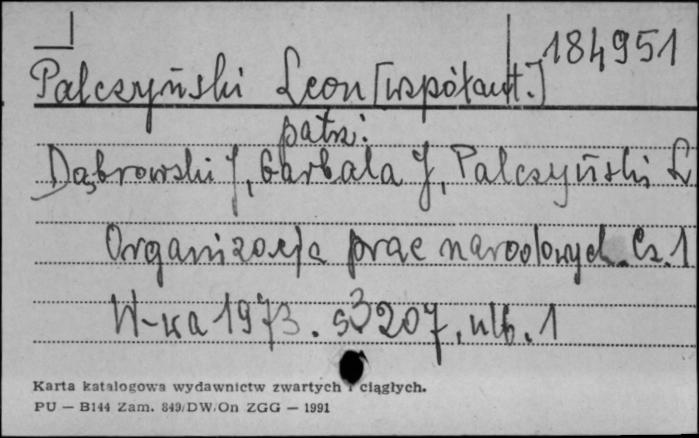 184951
Palczyński Leon [współaut.]
patrz:
Dąbrowski J, Garbala J, Palczyński L
Organizacja prac narodowych. Cz. 1
W-wa 1973. s 207, nlb. 1
Karta katalogowa wydawnictw zwartych i ciągłych.
PU — B144 Zam. 849/DW/On ZGG — 1991